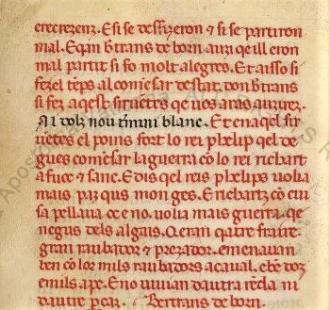 ererezenz. E si se desfizeron ⁊ si se partiron
mal. E qan ṽtrans de born auzi qeill eron
mal partit si fo molt alegres. Et aisso si
fez el tẽps al comẽsar destat. don ṽtrans
si fez aqest siruẽtes qe uos aras auzirez.
Al dolz nou termini blanc. Et en aqel sir
uẽtes el poins fort lo rei phelip qel de
gues comẽsar la guerra cõ lo rei richart
a fuoc ⁊ a sanc. E dis qel reis phelips uolia
mais paz qus mon ges. E richartz cõ cui
sapellaua oc e no. uolia mais guerra. qe
negus dels algais. Q eran qatre fraire
gran raubador ⁊ prezador. e menauan
ben cõ lor mils raubadors a caual. e be doz
emils a pe. E no uiuian dautra rẽda ni
dautre percaz. Bertrans de born.